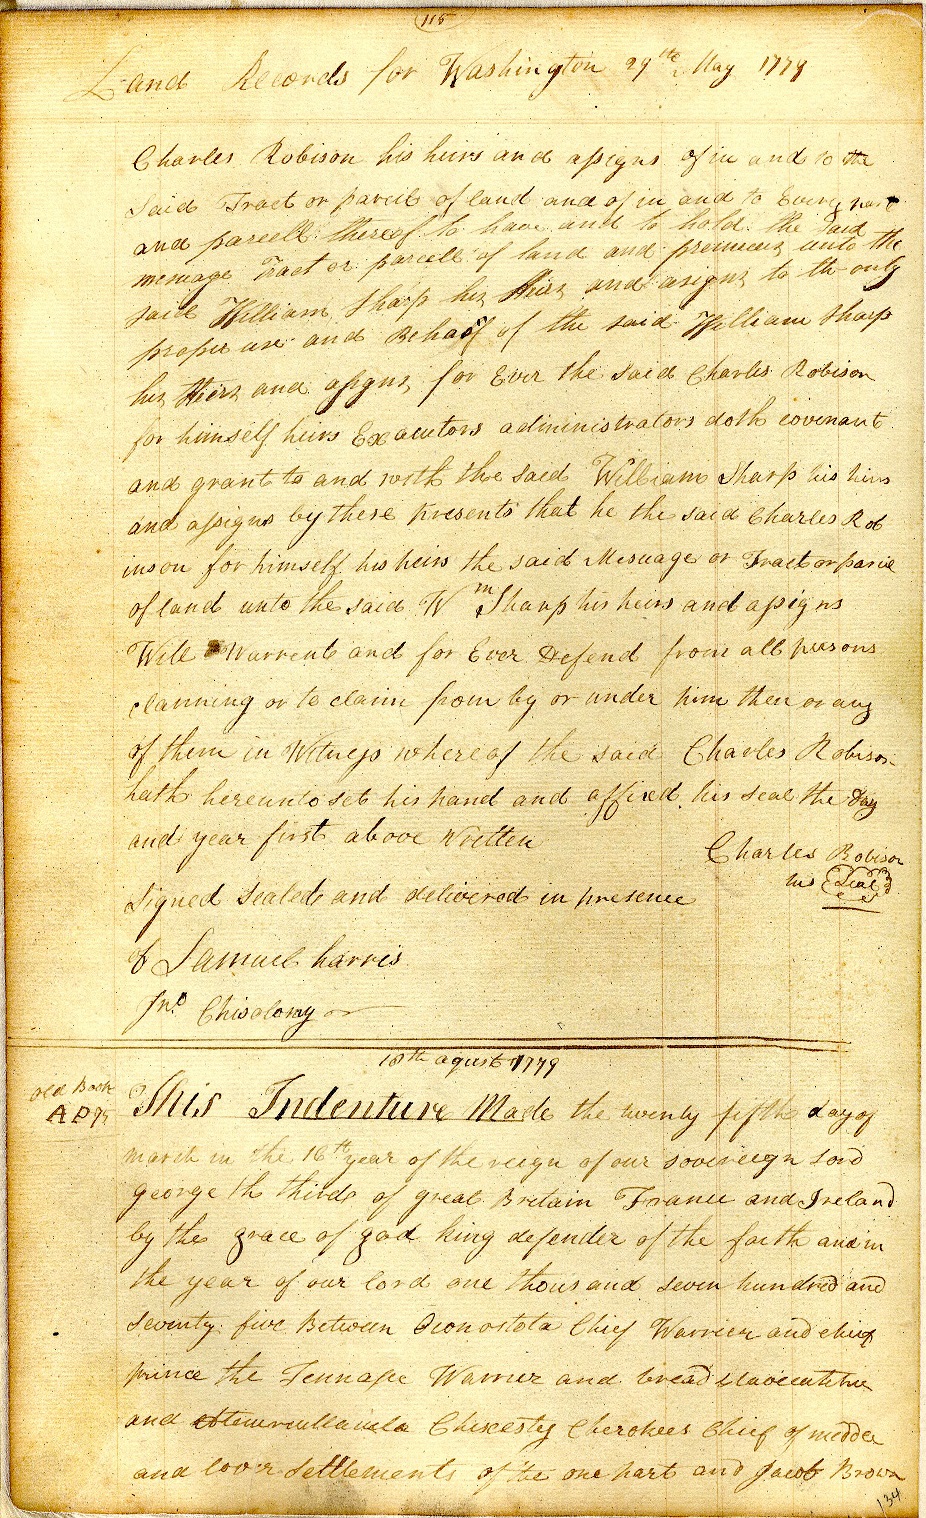 115
Land Records for Washington 29th May 1779
Charles Robison his heirs and assigns of in and to the
said Tract or parcel of land and of in and to Every part
and parcell thereof to have and to hold the said
mesuage Tract or parcell of land and premises unto the
said William Sharp his Heirs and asigns to the only
proper use and Behoof of the said William Sharp
his Heirs and assigns for Ever the said Charles Robison
for himself heirs Executors administrators doth covenant
and grant to and with the said William Sharp his heirs
and assigns by these presents that he the said Charles Rob
inson for himself his heirs the said Mesuage or Tract or parcel
of land unto the said Wm Sharp his heirs and assigns
Will Warrent and for Ever Defend from all persons
claiming or to claim from by or under him then or any
of them in Witness whereof the said Charles Robison
hath hereunto set his hand and affixed his seal the day
and year first above written
Charles Robison
his Seal
Signed Sealed and delivered in presence
of Samuel harris
Jno
18th agust 1779
Old Book
A P 95
This Indenture Made the twenty fifth day of
march in the 16th year of the reign of our sovereign lord
george th third of great Britain France and Ireland
by the grace of god king defender of the faith and in
the year of our lord one thousand seven hundred and
seventy five Between Oconostota Chief Warrior and chief
prince the Tennase Warrier and bread
and Cherokees Chief of midde
and lower settlements of the one part and Jacob Brown
134